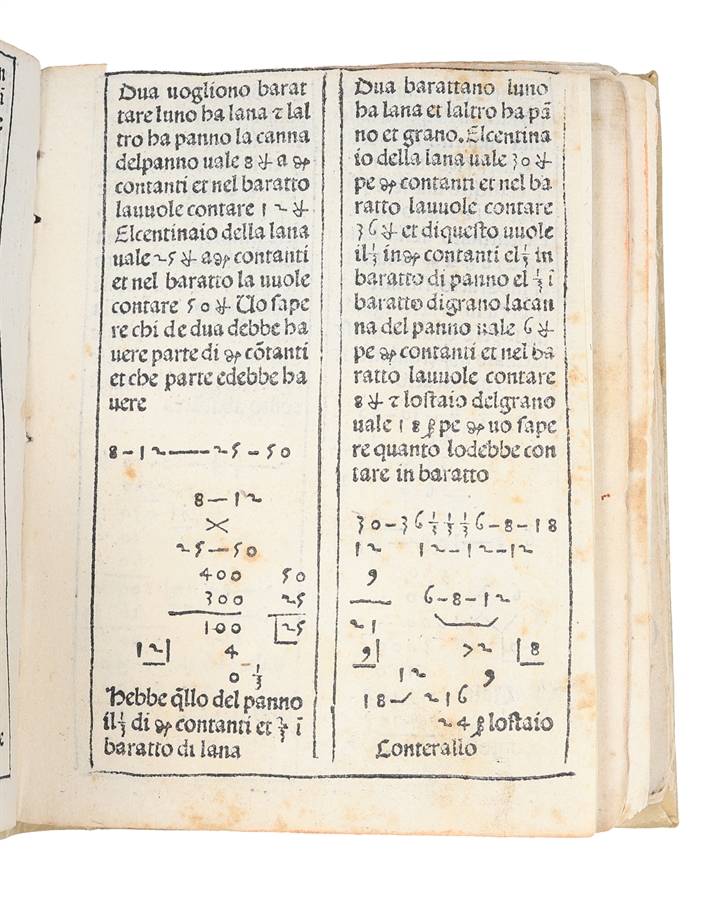 Dua uogliono barat
tare luno ha lana ⁊ lal
tro ha panno la canna
delpanno uale 8 a
contanti et nel baratto
lauuole contare 12
Elcentinaio della lana
uale 25 a contanti
et nel baratto la uuole
contare 50 Uo sape
re chi de dua debbe ha
uere parte di cōtanti
et che parte edebbe ha
uere
8–12——25–50
8—12
25—50
400 50
300 25
100 25
12 4
0 1/3
Hebbe q̄llo del panno
il 1/3 di contanti et 2/3 ī
baratto di lana
Dua barattano luno
ha lana et laltro ha pā
no et grano. Elcentina
io della lana uale 30
pe contanti et nel ba
ratto lauuole contare
36 et diquesto uuole
il 1/3 in contanti el 1/3 in
baratto di panno el 1/3 ī
baratto digrano lacan
na del panno uale 6
pe contanti et nel ba
ratto lauuole contare
8 ⁊ lostaio delgrano
uale 18 pe uo sape
re quanto lodebbe con
tare in baratto
30–36 1/3 1/3 1/3 6–8–18
12 12–12–12
9
6–8–12
21
9 72 8
12 9
18 216
24 lostaio
Conterallo